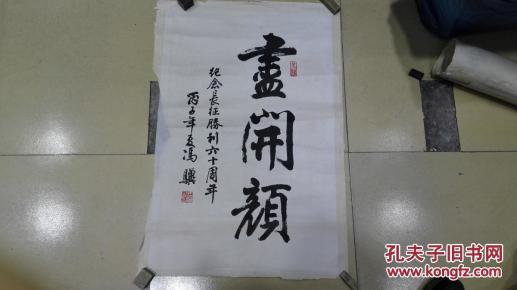 盡開顏
纪念長征勝利六十周年
丙子年夏馮驥
孔夫子旧书网
www.kongfz.com